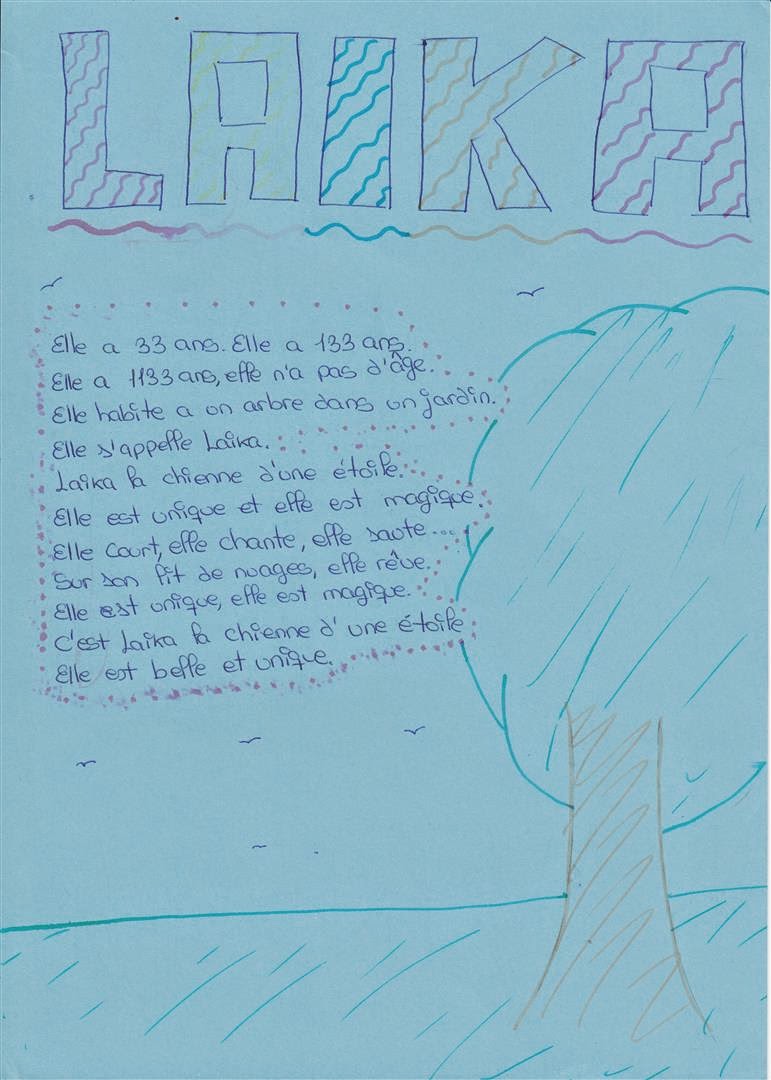 LAIKA
Elle a 33 ans. Elle a 133 ans.
Elle a 1133 ans, elle n'a pas d'âge.
Elle habite a un arbre dans un jardin.
Elle s'appelle Laika.
Laika la chienne d'une étoile.
Elle est unique et elle est magique.
Elle court, elle chante, elle saute...
Sur son lit de nuages, elle rêve.
Elle est unique, elle est magique.
C'est Laika la chienne d'une étoile
Elle est belle et unique.